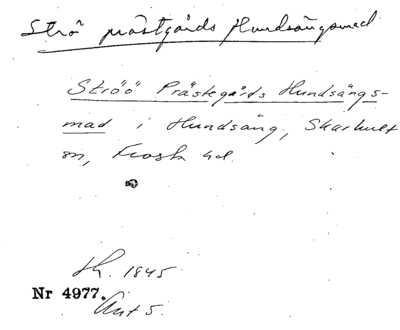 Strö prästgårds Hundsängsmad
Ströö Prästegårds Hundsängs-
mad i Hundsäng, Skarhult
sn, Frosta hd.
Sk. 1845
Nr 4977.
Ant 5.